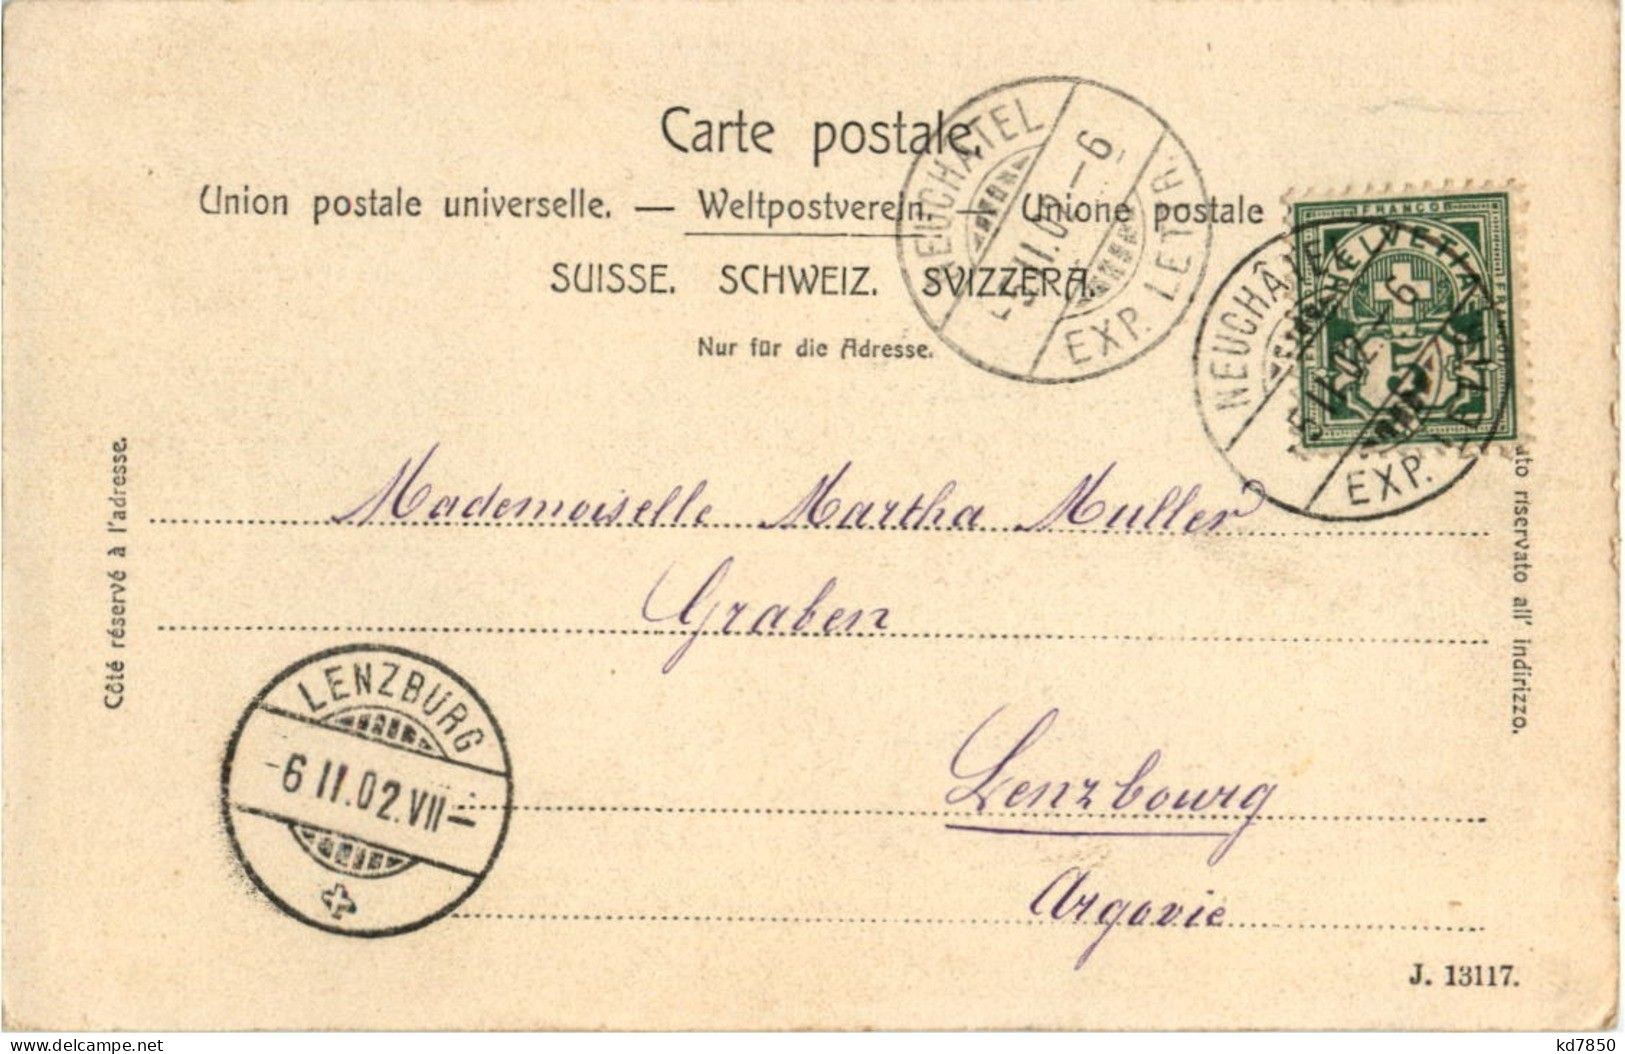 Carte postale.
Union postale universelle. — Weltpostverein. — Unione postale
SUISSE. SCHWEIZ. SVIZZERA.
Nur für die Adresse.
NEUCHÂTEL
-5.II.02.-6
EXP. LETR.
FRANCO
HELVETIA
FRANCO
5
NEUCHÂTEL
-5.II.02.-6
EXP. LETR.
Côté réservé à l'adresse.
ato riservato all' indirizzo.
Mademoiselle Martha Muller
Graben
LENZBURG
-6 II.02.VII-
Lenzbourg
Argovie
J. 13117.
delcampe.net
kd7850